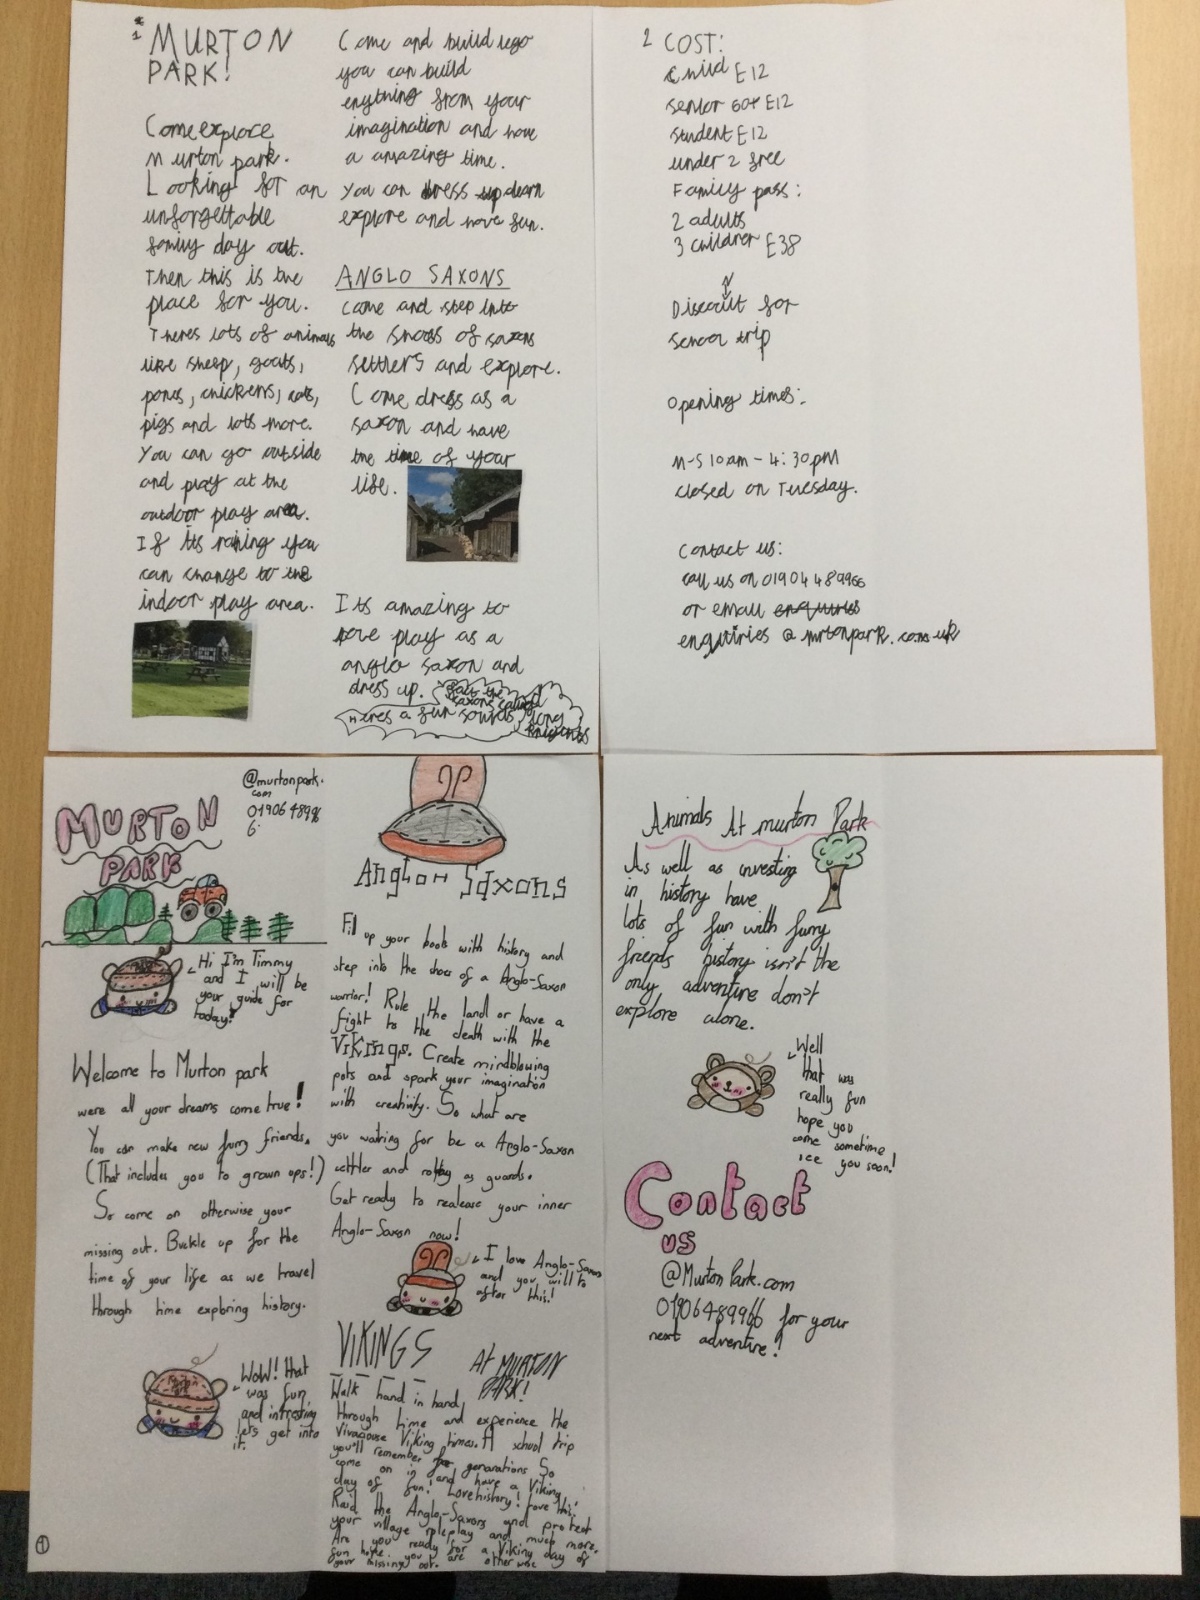 1 MURTON
PARK!
Come explore
Murton park.
Looking for an
unforgettable
family day out.
Then this is the
place for you.
Theres lots of animals
like sheep, goats,
ponis, chickens, cats,
pigs and lots more.
You can go outside
and play at the
outdoor play area.
If its raining you
can change to the
indoor play area.
Come and build lego
you can build
enything from your
imagination and have
a amazing time.
You can dress up learn
explore and have fun.
ANGLO SAXONS
Come and step into
the shoes of saxons
settlers and explore.
Come dress as a
saxon and have
the time of your
life.
Its amazing to
role play as a
anglo saxon and
dress up.
Heres a fun
saxons called
long
2 COST:
child £12
senior 60+ £12
student £12
under 2 free
Family pass:
2 adults
3 children £38
Discout for
school trip
Opening times:
M-S 10am - 4:30pm
closed on Tuesday.
Contact us:
call us on 01904 489966
or email enquiries
enquiries @ murtonpark.co.uk
MURTON
PARK
@murtonpark.
com
01906 48996
6
Hi I'm Timmy
and I will be
your guide for
today!
Welcome to Murton park
were all your dreams come true!
You can make new furry friends.
(That includes you to grown ups!)
So come on otherwise your
missing out. Buckle up for the
time of your life as we travel
through time exploring history.
WOW! that
was fun
and intresting
lets get into
it.
1
Anglo-Saxons
Fill up your boots with history and
step into the shoes of a Anglo-Saxon
warrior! Rule the land or have a
fight to the death with the
Vikings. Create mindblowing
pots and spark your imagination
with creativity. So what are
you waiting for be a Anglo-Saxon
settler and as guards.
Get ready to realease your inner
Anglo-Saxon now!
I love Anglo-Saxons
and you will to
after this!
VIKINGS
At MURTON
PARK!
Walk hand in hand
through time and experience the
Viking times. A school trip
you'll remember for generations So
come on in and have a Viking
day of fun! Love history! Love this!
Raid the Anglo-Saxons and protect
your village roleplay and much more.
Are you ready for a Viking day of
fun hope you are otherwise
your missing out.
Animals At murton Park
As well as investing
in history have
lots of fun with furry
friends history isn't the
only adventure don't
explore alone.
Well
that was
really fun
hope you
come sometime
see you soon!
Contact
us
@Murton Park.com
01906489966 for your
next adventure!